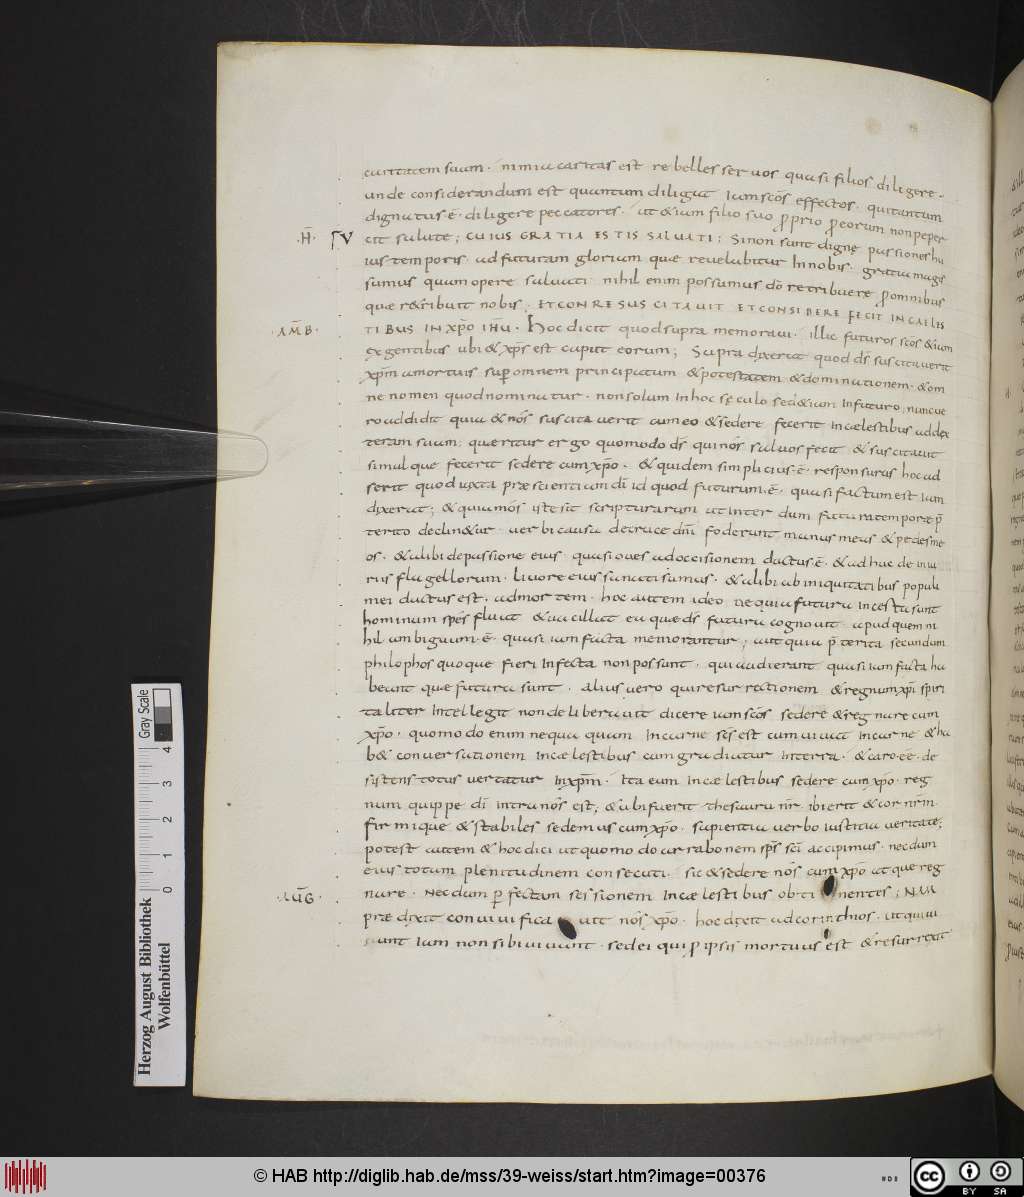 caritatem suam · nimia caritas est rebelles seruos quasi filios diligere ·
unde considerandum est quantum diligat iam sc̄os effectos · qui tantum
dignatus ē · diligere peccatores · ut & iam filio suo proprio pro eorum non peper
·H̄· cit salute ; CUIUS GRATIA ESTIS SALUATI ; Si non sunt dignę passiones hu
ius temporis · ad futuram gloriam quae reuelabitur In nobis · gratia magis
sumus quam opere saluati nihil enim possumus dō retribuere pro omnibus
quae r&ribuit nobis ; ET CONRESUSCITAUIT ET CONSIDERE FECIT IN CAELIS
·AM̄B· TIBUS IN XP̄O IH̄U · Hoc dicit quod supra memoraui · illic futuros sc̄os &iam
ex gentibus ubi & xp̄s est caput eorum ; Supra dixerat quod d̄s suscitauerit
xp̄m a mortuis super omnem principatum & potestatem & dominationem · & om
ne nomen quod nominatur · non solum In hoc sęculo sed &iam In futuro ; nunc ue
ro addidit quia & nōs suscitauerit cum eo & sedere fecerit In caelestibus ad dex
teram suam ; queritur ergo quomodo d̄s qui nōs saluos fecit & suscitauit
simulque fecerit sedere cum xp̄o · & quidem simplicius ē · responsurus hoc ad
serit quod iuxta praescientiam dī id quod futurum ē · quasi factum est iam
dixerat ;
terito declin&ur · uerbi causa de cruce dn̄i foderunt manus meas & pedes me
os · & alibi de passione eius · quasi oues ad occisionem ductus ē & adhuc de iniu
riis flagellorum · liuore eius sanati sumus · & alibi ab iniquitatibus populi
mei ductus est · ad mortem · hoc autem ideo ne quia futura incesta sunt
hominum spēs fluat & uacillat ea quae d̄s futura cognouit · apud quem ni
hil ambiguum ē · quasi iam facta memorantur ; aut quia p̄terita secundum
philophos quoque fieri Infecta non possunt · qui audierant quasi iam facta ha
beant quae futura sunt · alius uero qui resurrectionem & regnum xp̄i spiri
taliter Intellegit non deliberauit dicere iam sc̄os sedere & regnare cum
xp̄o · quomodo enim nequaquam In carne sc̄s est cum uiuat In carne & ha
b& conuersationem In caelestibus cum gradiatur In terra · & caro eē · de
sistens totus uertatur In xp̄m · Ita eum In caelestibus sedere cum xp̄o · reg
num quippe dī Intra nōs est ; & ubi fuerit thesauru nr̄ ibi erit & cor nr̄m ·
firmique & stabiles sedemus cum xp̄o · sapientia uerbo iustitia ueritate ;
potest autem & hoc dici ut quomodo arrabonem sp̄s sc̄i accipimus · necdum
eius totum plenitudinem consecuti · sic & sedere nōs cum xp̄o atque reg
·AŪG· nare · necdum perfectam sessionem In caelestibus obtinentes ; NAM
praedixit conuiuificauit nōs xp̄o · hoc dixit ad corinthios · ut qui ui
uunt iam non sibi uiuant · sed ei qui pro ipsis mortuus est & resurrexit
Gray Scale
0 1 2 3 4
Herzog August Bibliothek
Wolfenbüttel
© HAB http://diglib.hab.de/mss/39-weiss/start.htm?image=00376
cc BY SA